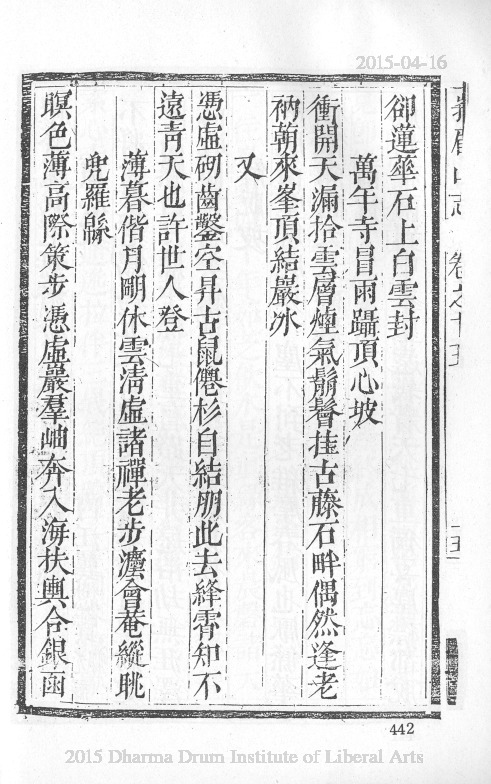 2015-04-16
峩眉山志 卷之十五
卻蓮華石上白雲封
萬年寺冒雨躡頂心坡
衝開天漏拾雲層煙氣鬅鬙挂古藤石畔偶然逢老
衲朝來峯頂結巖冰
又
憑虛砌齒鑿空昇古鼠僊杉自結朋此去絳霄知不
遠青天也許世人登
薄暮偕月朙休雲淸虛諸禪老步瀍會菴縱眺
兜羅緜
暝色薄高際策步憑虛巖羣岫奔入海扶輿合銀函
442
2015 Dharma Drum Institute of Liberal Arts